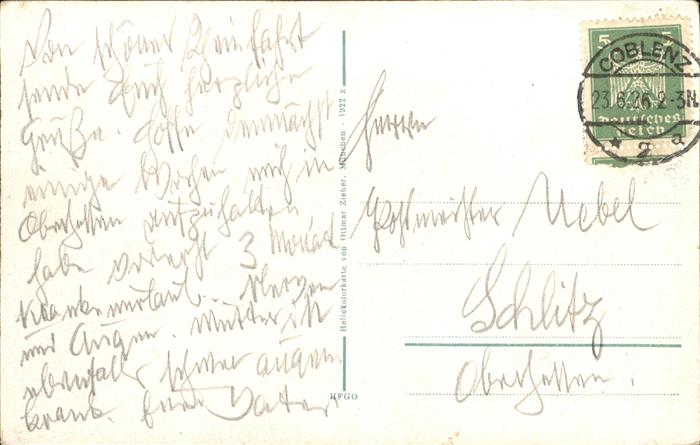 Von schöner Rheinfahrt
sende Euch herzliche
Grüße. Hoffe demnächst
einige Wochen mich in
Oberhessen aufzuhalten,
habe vorerst 3 Monat
Krankenurlaub. Nerven
und Augen. Mutter ist
ebenfalls schwer augen
krank. Euer Vater
Heliokolorkarte von Ottmar Zieher, München - 1922 x
HFGO
5 5
COBLENZ
23.6.26.2-3N
Deutsches
Reich
* 2 a
Herrn
Postmeister Uebel
Schlitz
Oberhessen.